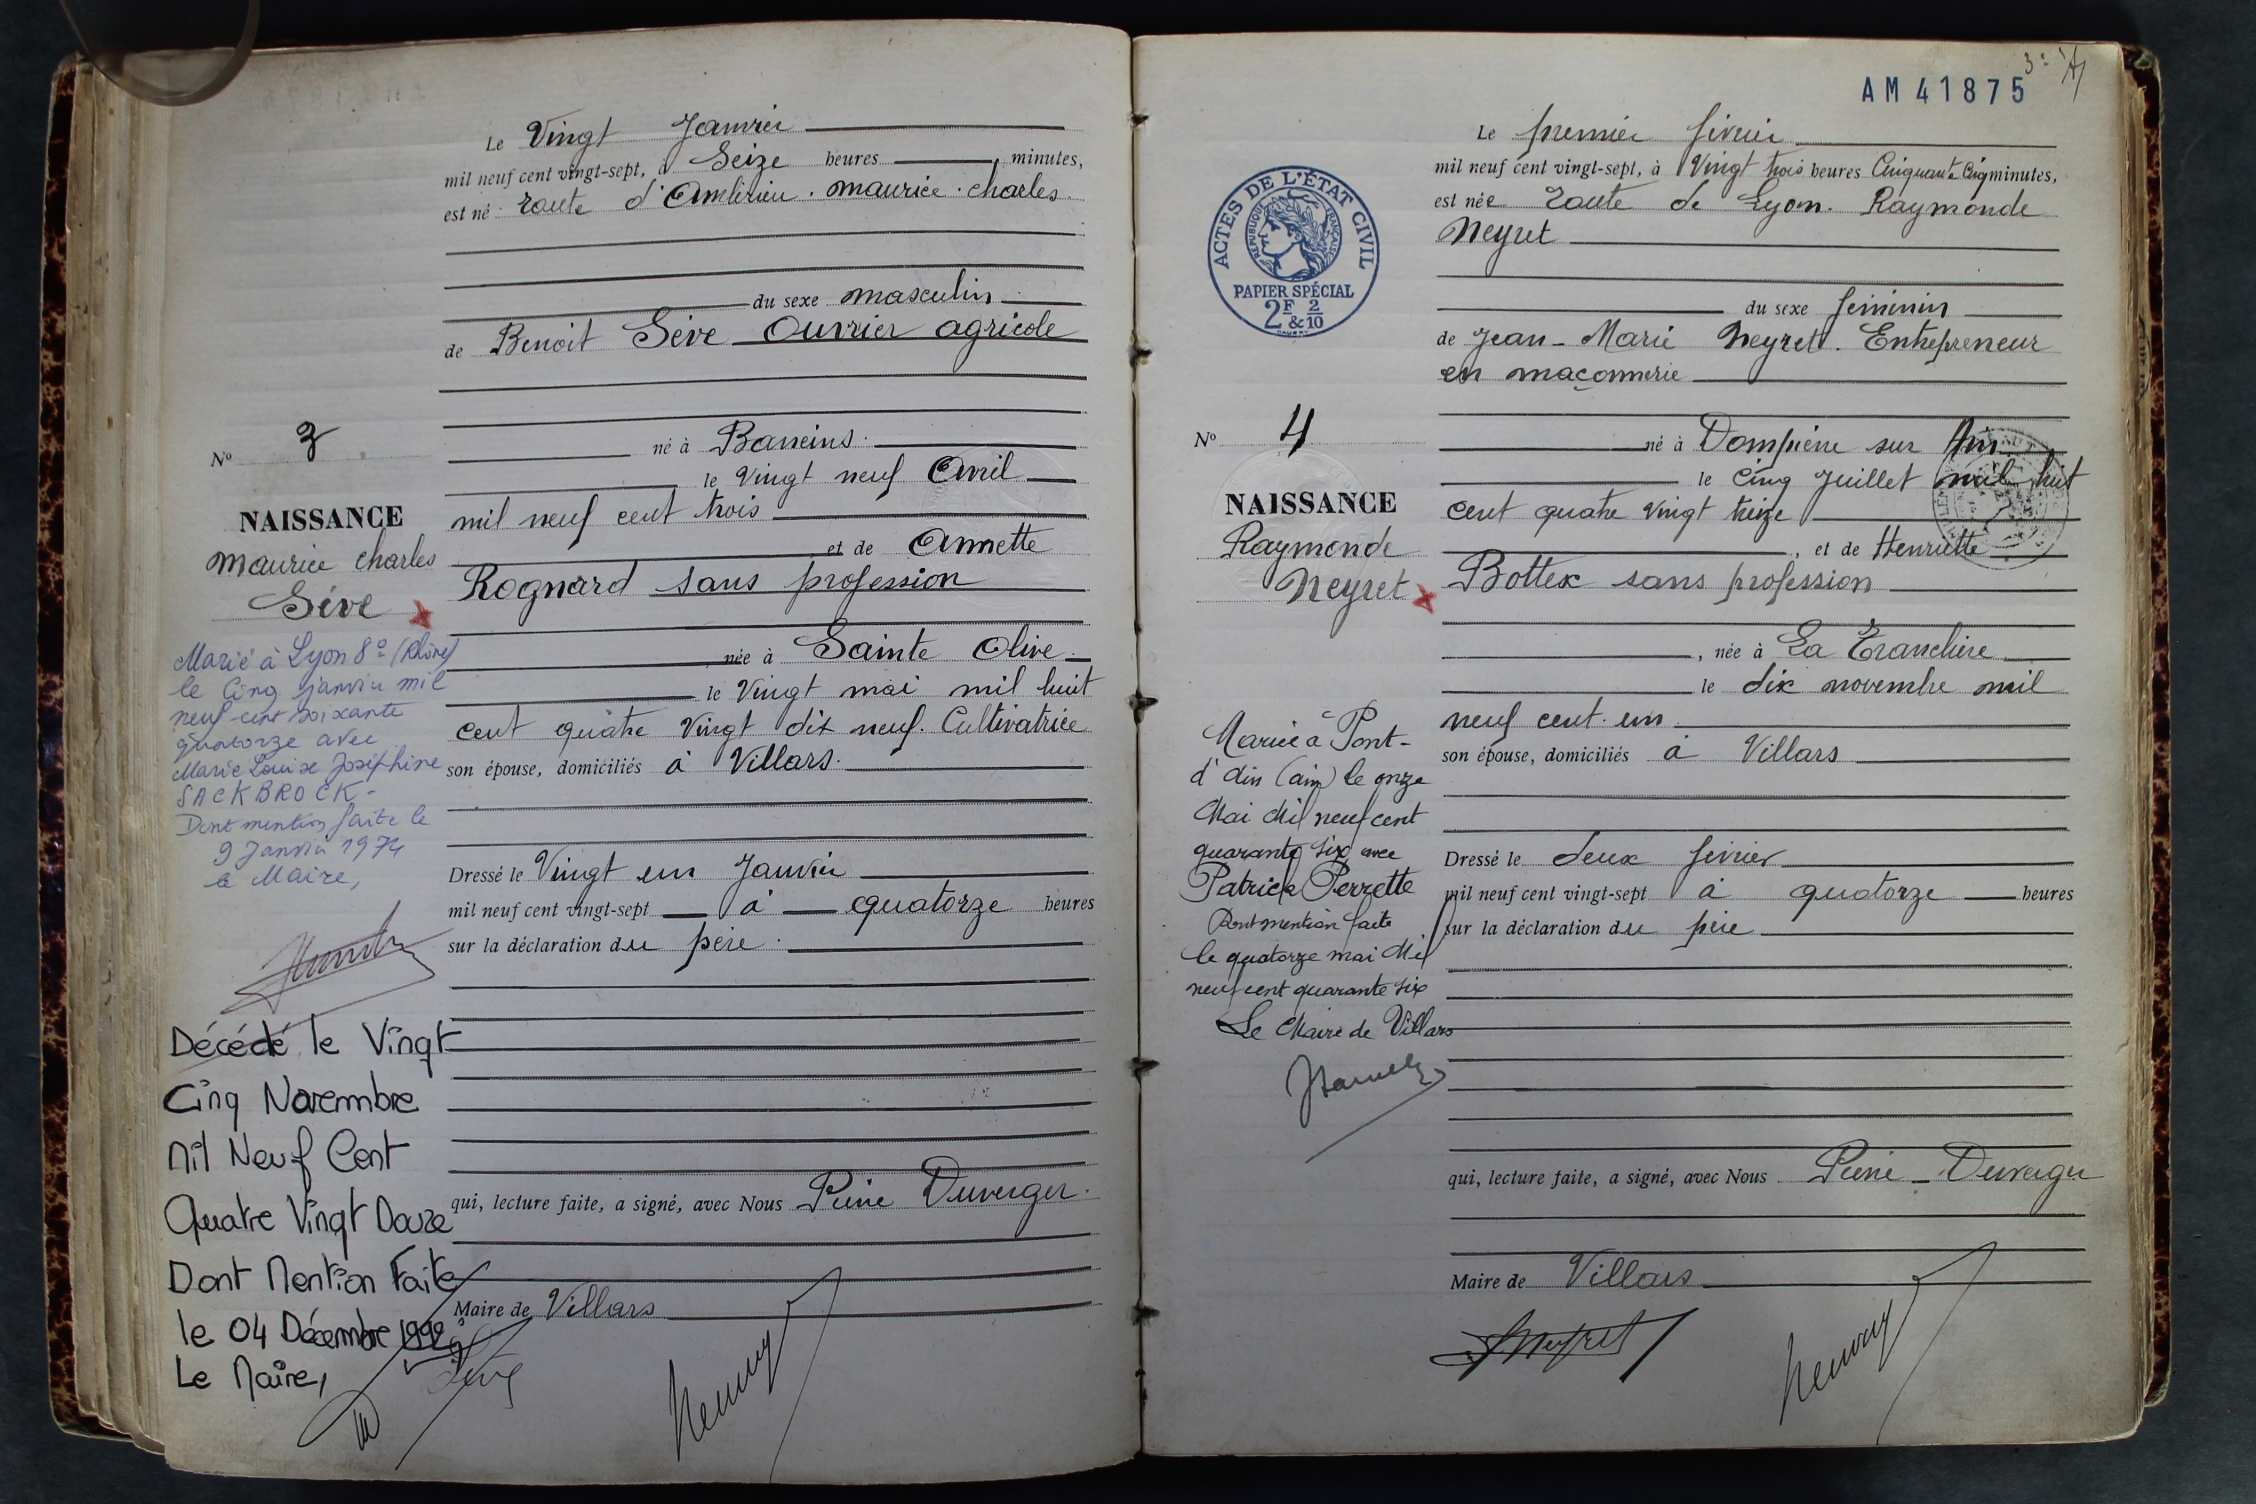 Le Vingt Janvier
mil neuf cent vingt-sept, à Seize heures minutes,
est né route d'Ambérieu. Maurice. Charles.
du sexe masculin
de Benoit Sève ouvrier agricole
né à Baneins.
le vingt neuf Avril
mil neuf cent trois
et de Annette
Rognard sans profession
née à Sainte Olive
le Vingt mai mil huit
cent quatre vingt dix neuf. Cultivatrice
son épouse, domiciliés à Villars.
Dressé le Vingt un Janvier
mil neuf cent vingt-sept à quatorze heures
sur la déclaration du père.
qui, lecture faite, a signé, avec Nous Pierre Duverger.
Maire de Villars
Nº 3
NAISSANCE
Maurice Charles
Sève
Marié à Lyon 8e (Rhône)
le Cinq janvier mil
neuf-cent soixante
quatorze avec
Marie Louise Joséphine
SACKBROCK-
Dont mention faite le
9 Janvier 1974
le Maire,
Décédé le Vingt
Cinq Novembre
Mil Neuf Cent
Quatre Vingt Douze
Dont Mention Faite
le 04 Décembre 1992
Le Maire,
Sève
AM 41875
ACTES DE L'ÉTAT CIVIL
RÉPUBLIQUE FRANÇAISE
PAPIER SPÉCIAL
2F & 2/10
Le premier février
mil neuf cent vingt-sept, à Vingt trois heures Cinquante Cinq minutes,
est née route de Lyon. Raymonde
Neyret
du sexe féminin
de Jean-Marie Neyret. Entrepreneur
en maçonnerie
né à Dompierre sur Ain
le Cinq Juillet mil huit
cent quatre vingt treize
, et de Henriette
Bottex sans profession
, née à La Tranclière
le dix novembre mil
neuf cent un
son épouse, domiciliés à Villars
Dressé le deux février
mil neuf cent vingt-sept à quatorze heures
sur la déclaration du père
qui, lecture faite, a signé, avec Nous Pierre Duverger
Maire de Villars
Neyret
Nº 4
NAISSANCE
Raymonde
Neyret
Mariée à Pont-
d'Ain (Ain) le onze
Mai Mil neuf cent
quarante six avec
Patrick Perrette
Dont mention faite
le quatorze mai Mil
neuf cent quarante six
Le Maire de Villars